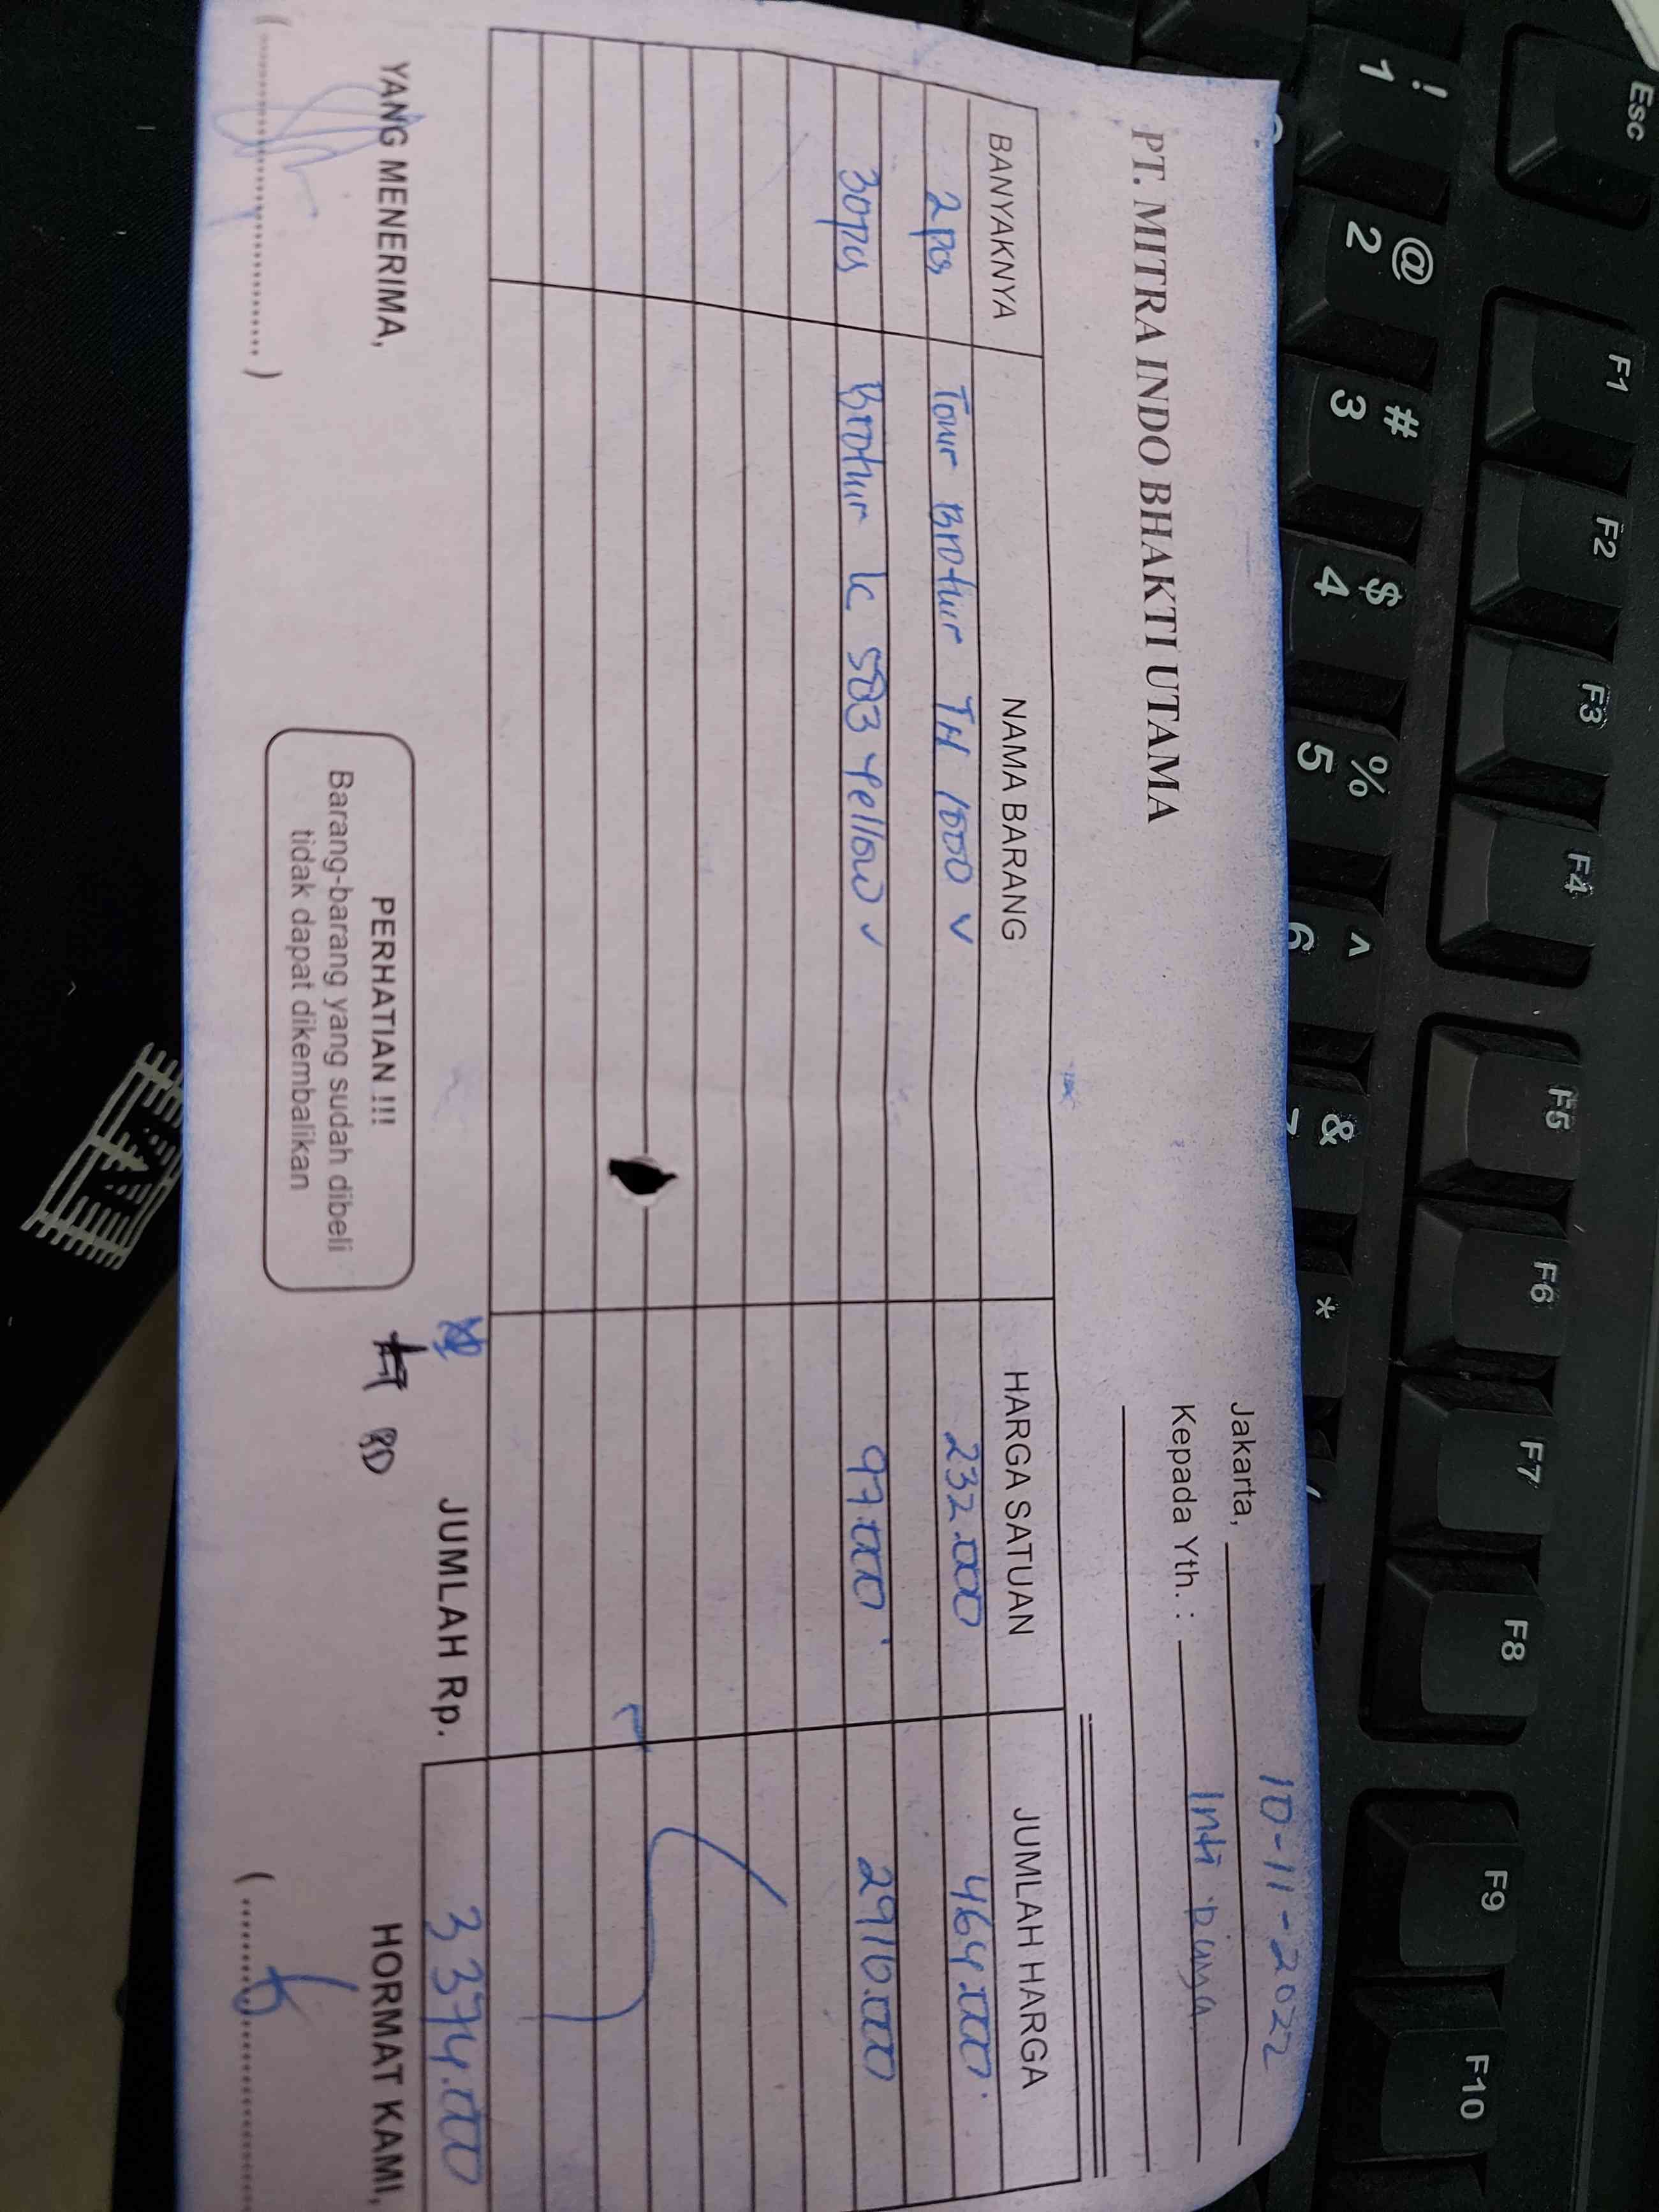 PT. MITRA INDO BHAKTI UTAMA
Jakarta, 10-11-2022
Kepada Yth. : Inti Daya
BANYAKNYA NAMA BARANG HARGA SATUAN JUMLAH HARGA
2 pcs Toner Brother TN 1000 ✓ 232.000 464.000
30 pcs Brother lc 583 Yellow ✓ 97.000 2910.000
JUMLAH Rp. 3374.000
YANG MENERIMA,
PERHATIAN !!!
Barang-barang yang sudah dibeli
tidak dapat dikembalikan
HORMAT KAMI,
Esc F1 F2 F3 F4 F5 F6 F7 F8 F9 F10
! @ # $ % ^ & *
1 2 3 4 5 6